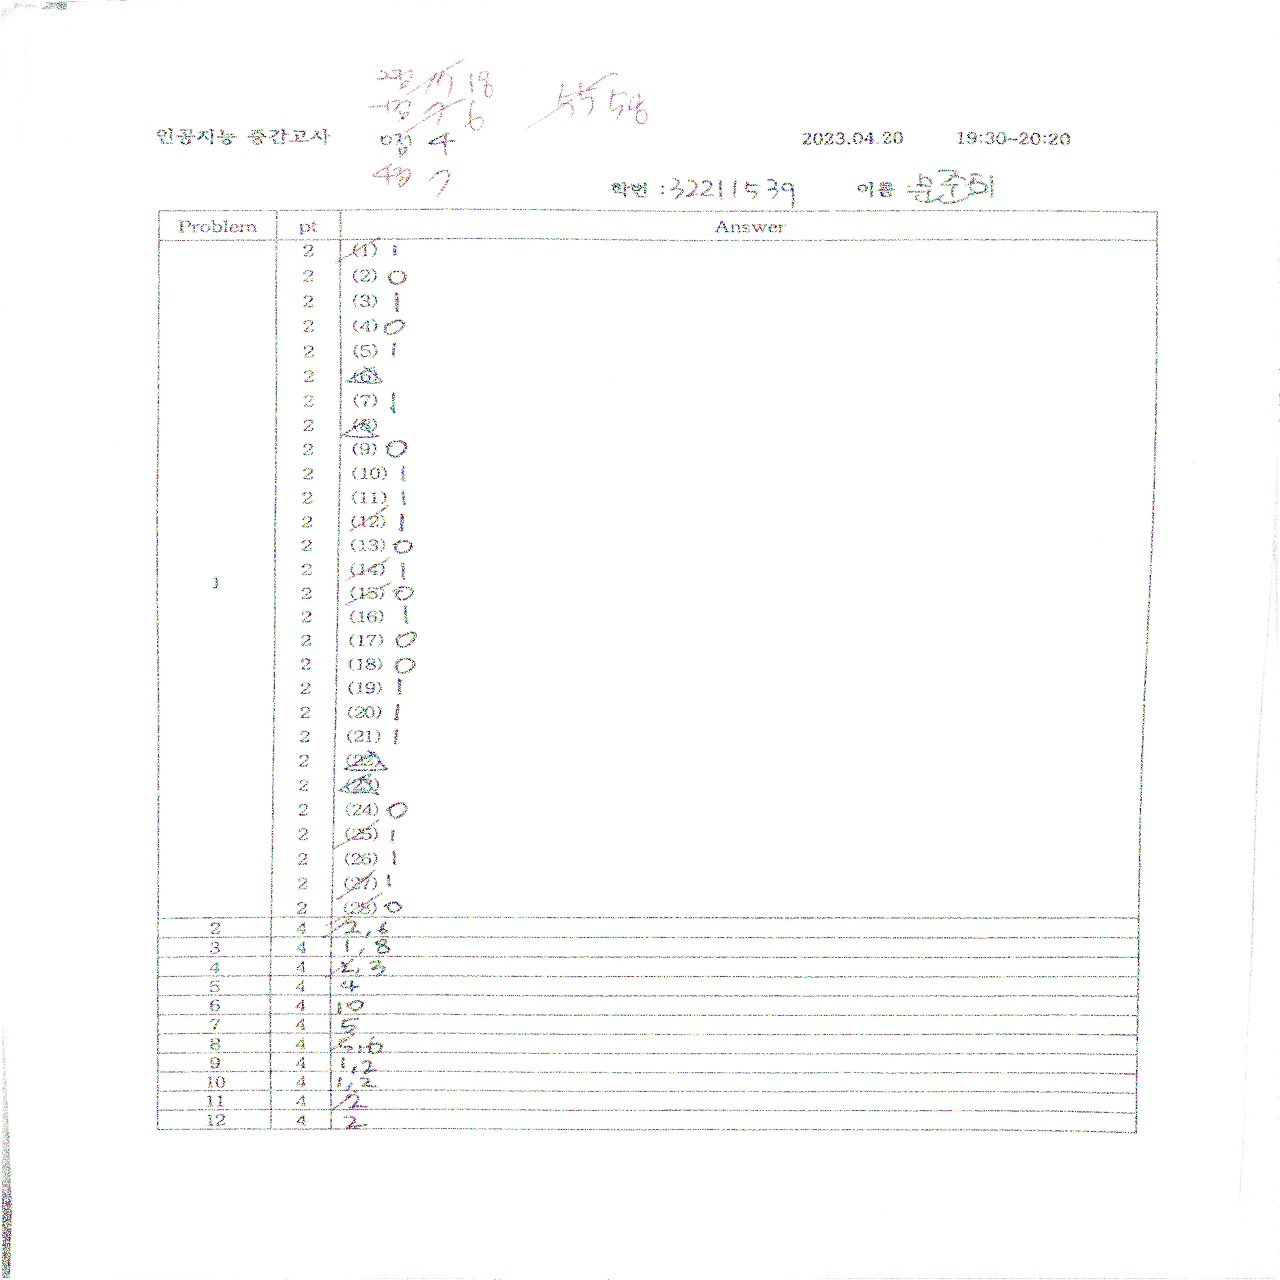 2점 17 18
-1점 7 6 55 58
인공지능 중간고사 0점 4 2023.04.20 19:30~20:20
4점 7
학번 : 32211539 이름 :
Problem pt Answer
1
2 (1) 1
2 (2) 0
2 (3) 1
2 (4) 0
2 (5) 1
2 (6)
2 (7) 1
2 (8)
2 (9) 0
2 (10) 1
2 (11) 1
2 (12) 1
2 (13) 0
2 (14) 1
2 (15) 0
2 (16) 1
2 (17) 0
2 (18) 0
2 (19) 1
2 (20) 1
2 (21) 1
2 (22)
2 (23)
2 (24) 0
2 (25) 1
2 (26) 1
2 (27) 1
2 (28) 0
2 4 2, 6
3 4 1, 8
4 4 2, 3
5 4 4
6 4 10
7 4 5
8 4 5, 6
9 4 1, 2
10 4 1, 2
11 4 2
12 4 2